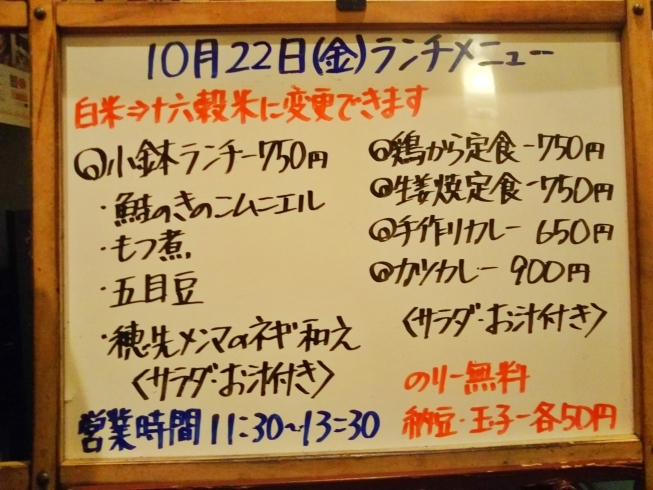 10月22日(金)ランチメニュー
白米⇒十六穀米に変更できます
◎小鉢ランチー750円
・鮭のきのこムニエル
・もつ煮
・五目豆
・穂先メンマのネギ和え
〈サラダ・お汁付き〉
営業時間11:30〜13:30
◎鶏から定食ー750円
◎生姜焼定食ー750円
◎手作りカレー 650円
◎カツカレー 900円
〈サラダ・お汁付き〉
のりー無料
納豆・玉子ー各50円